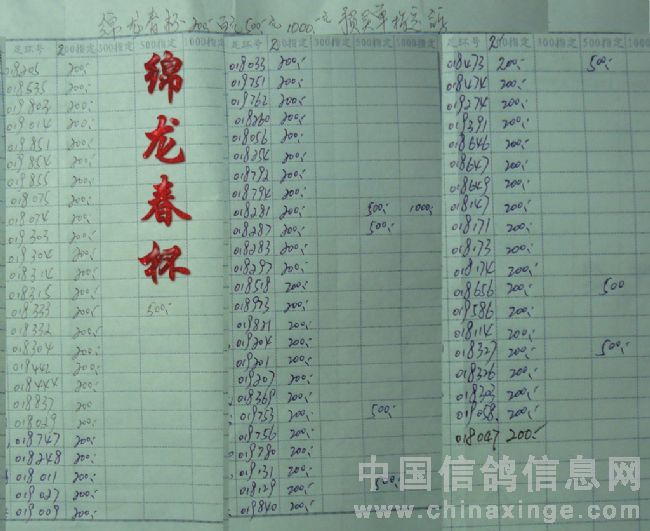 绵龙春杯200元500元1000元
足环号 200指定 300指定 500指定 1000指定
018205 200
018535 200
019803 200
019014 200
019851 200
019854 200
019855 200
018075 200
018074 200
019303 200
018314 200
018315 200
018333 200 500
018332 200
018304 200
018444 200
018837 200
018029 200
018747 200
018248 200
018011 200
019027 200
019009 200
绵龙春杯
足环号 200指定 300指定 500指定 1000指定
018033 200
019751 200
019762 200
018260 200
018056 200
018254 200
018792 200
018794 200
018281 200 500 1000
018287 200 500
018283 200
018297 200
018518 200
018973 200
019821 200
019204 200
019201 200
019207 200
018369 200
019753 200 500
019756 200
019780 200
019131 200
018129 200 500
019840 200
足环号 200指定 300指定 500指定 1000指定
018473 200 500
018474 200
019274 200
019391 200
018646 200
018647 200
018649 200
018147 200
018171 200
018173 200
018174 200
018656 200 500
019586 200
018114 200
018327 200 500
018326 200
018303 200
019058 200
018047 200
中国信鸽信息网
www.chinaxinge.com